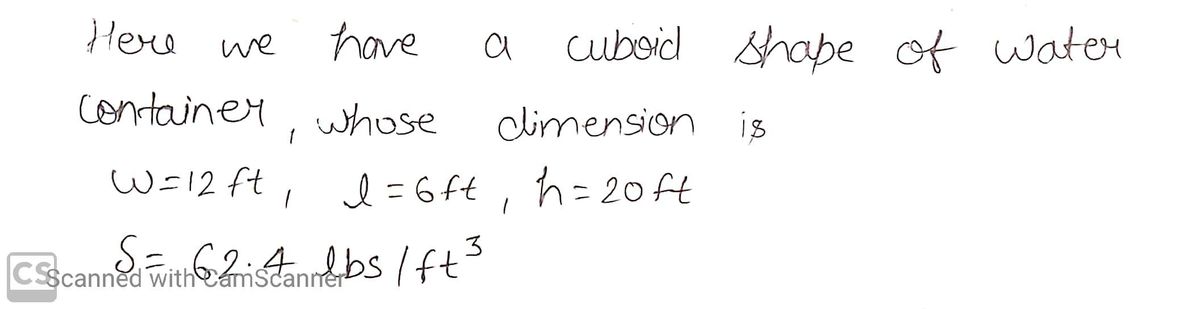 Here we have a cuboid shape of water
container, whose dimension is
w=12 ft, l=6ft, h=20ft
S= 62.4 lbs/ft³
CS Scanned with CamScanner